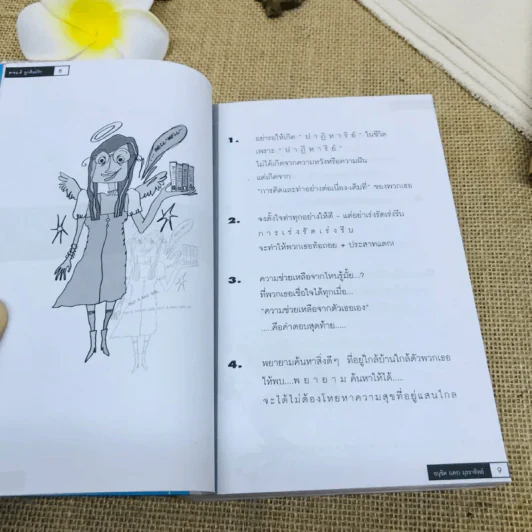 8
WELL-WELL~
1.
อย่ารอให้เกิด " ป า ฏิ ห า ริ ย์ " ในชีวิต
เพราะ " ป า ฏิ ห า ริ ย์ "
ไม่ได้เกิดจากความหวังหรือความฝัน
แต่เกิดจาก
"การคิดและทำอย่างต่อเนื่อง-เต็มที่" ของพวกเธอ
2.
จงตั้งใจทำทุกอย่างให้ดี - แต่อย่าเร่งรัดเร่งรีบ
ก า ร เ ร่ ง รั ด เ ร่ ง รี บ
จะทำให้พวกเธอท้อถอย + ประสาทแดก!
3.
ความช่วยเหลือจากไหนรู้มั้ย...?
ที่พวกเธอเชื่อใจได้ทุกเมื่อ...
"ความช่วยเหลือจากตัวเธอเอง"
....คือคำตอบสุดท้าย.....
4.
พยายามค้นหาสิ่งดีๆ ที่อยู่ใกล้บ้านใกล้ตัวพวกเธอ
ให้พบ....พ ย า ย า ม ค้นหาให้ได้....
จะได้ไม่ต้องโหยหาความสุขที่อยู่แสนไกล
9